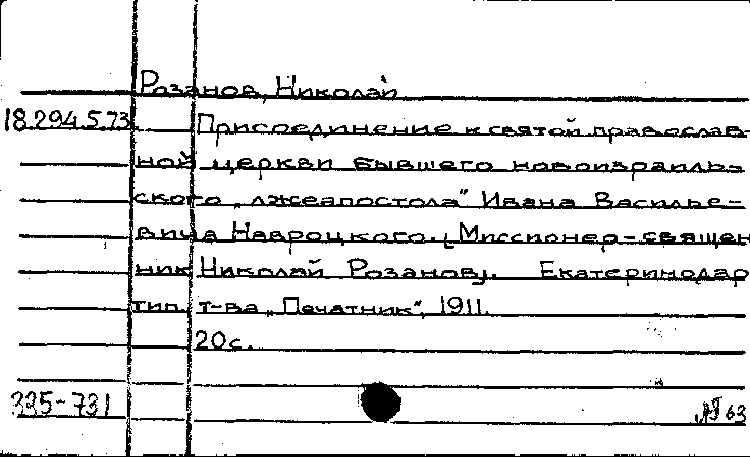 Розанов, Николай
18.294.5.73 Присоединение к святой православ-
ной церкви бывшего новоизраиль-
ского „лжеапостола" Ивана Василье-
вича Навроцкого. [Миссионер-священ
ник Николай Розанов]. Екатеринодар
тип. т-ва „Печатник", 1911.
20с.
335-731
63